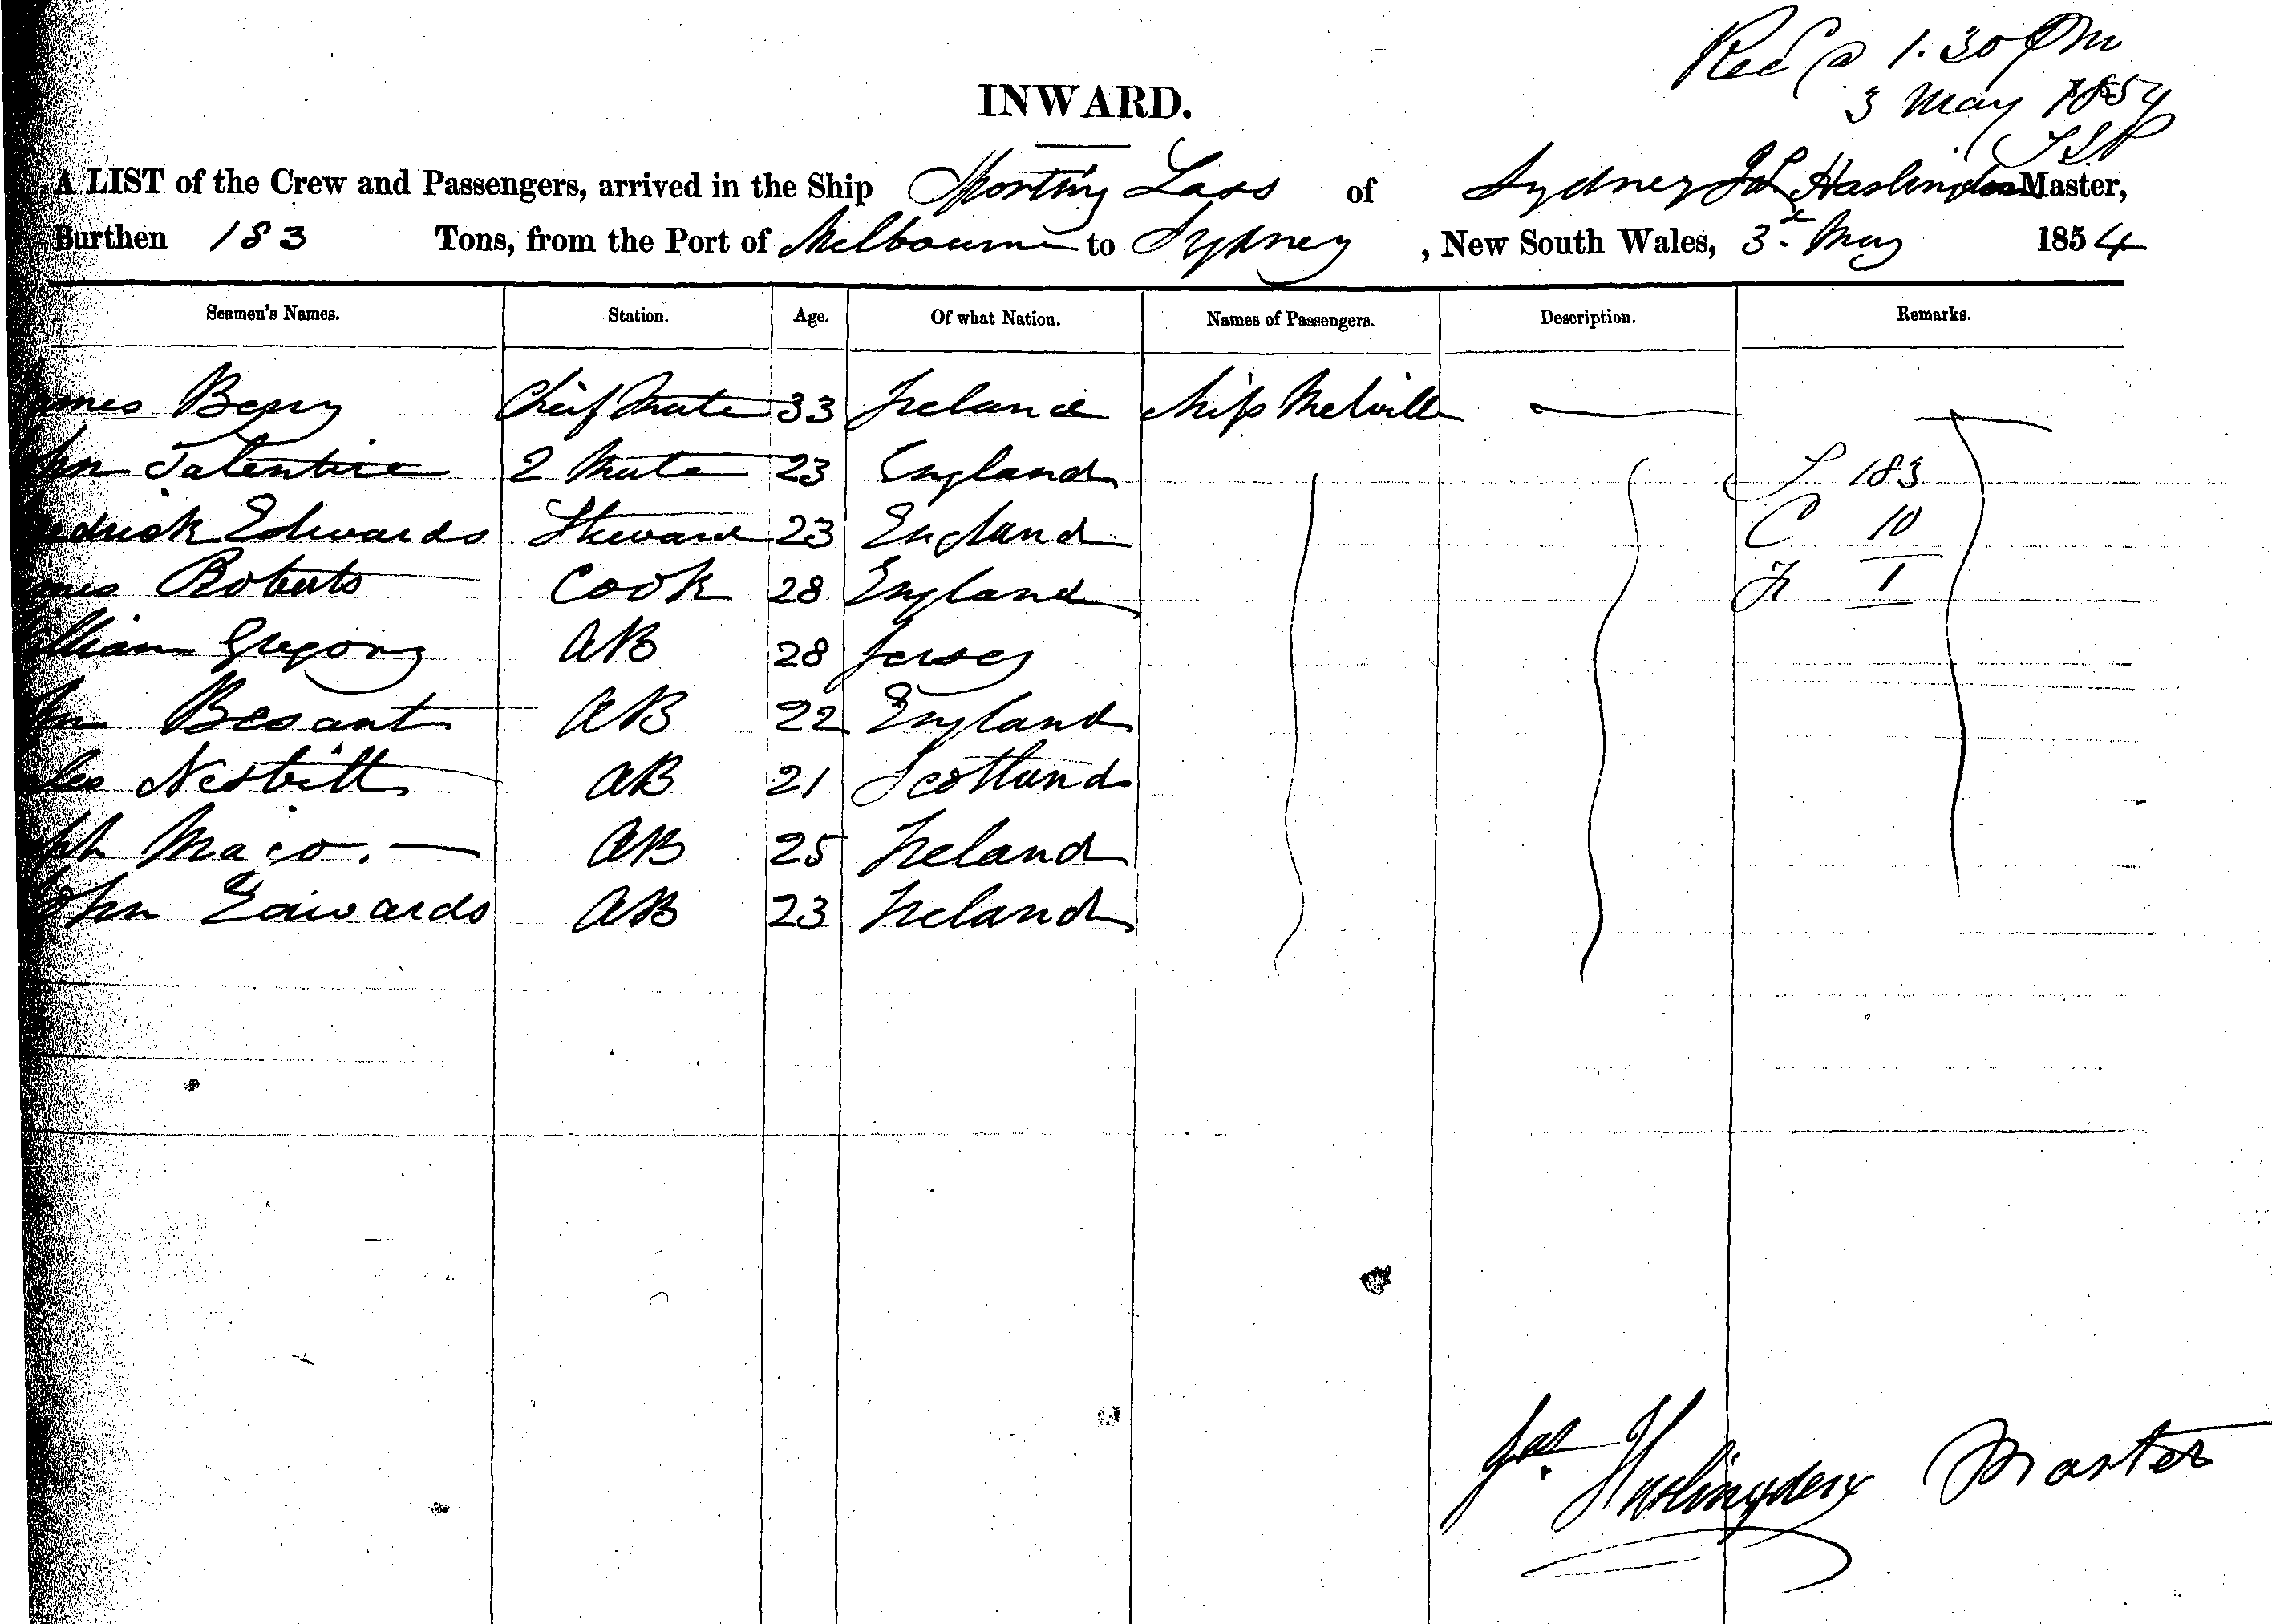 Recd @ 1.30 PM
3 May 1854
INWARD.
A LIST of the Crew and Passengers, arrived in the Ship Sporting Lass of Sydney Jas Haslingden Master,
Burthen 183 Tons, from the Port of Melbourne to Sydney, New South Wales, 3d May 1854
Seamen's Names. Station. Age. Of what Nation. Names of Passengers. Description. Remarks.
ames Berry Chief Mate 33 Ireland Melville
ohn 2 Mate 23 England T 183
edrick Edwards Steward 23 England C 10
ames Roberts Cook 28 England 1
illiam Gregory AB 28 Jersey
Besant AB 22 England
Nesbitt AB 21 Scotland
AB 25 Ireland
John Edwards AB 23 Ireland
Jas Haslingden Master